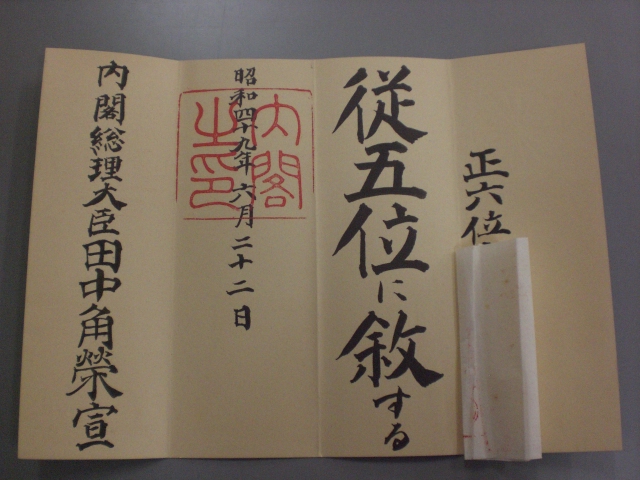 正六位
従五位に敘する
昭和四十九年六月二十二日
内閣之印
内閣総理大臣田中角榮宣